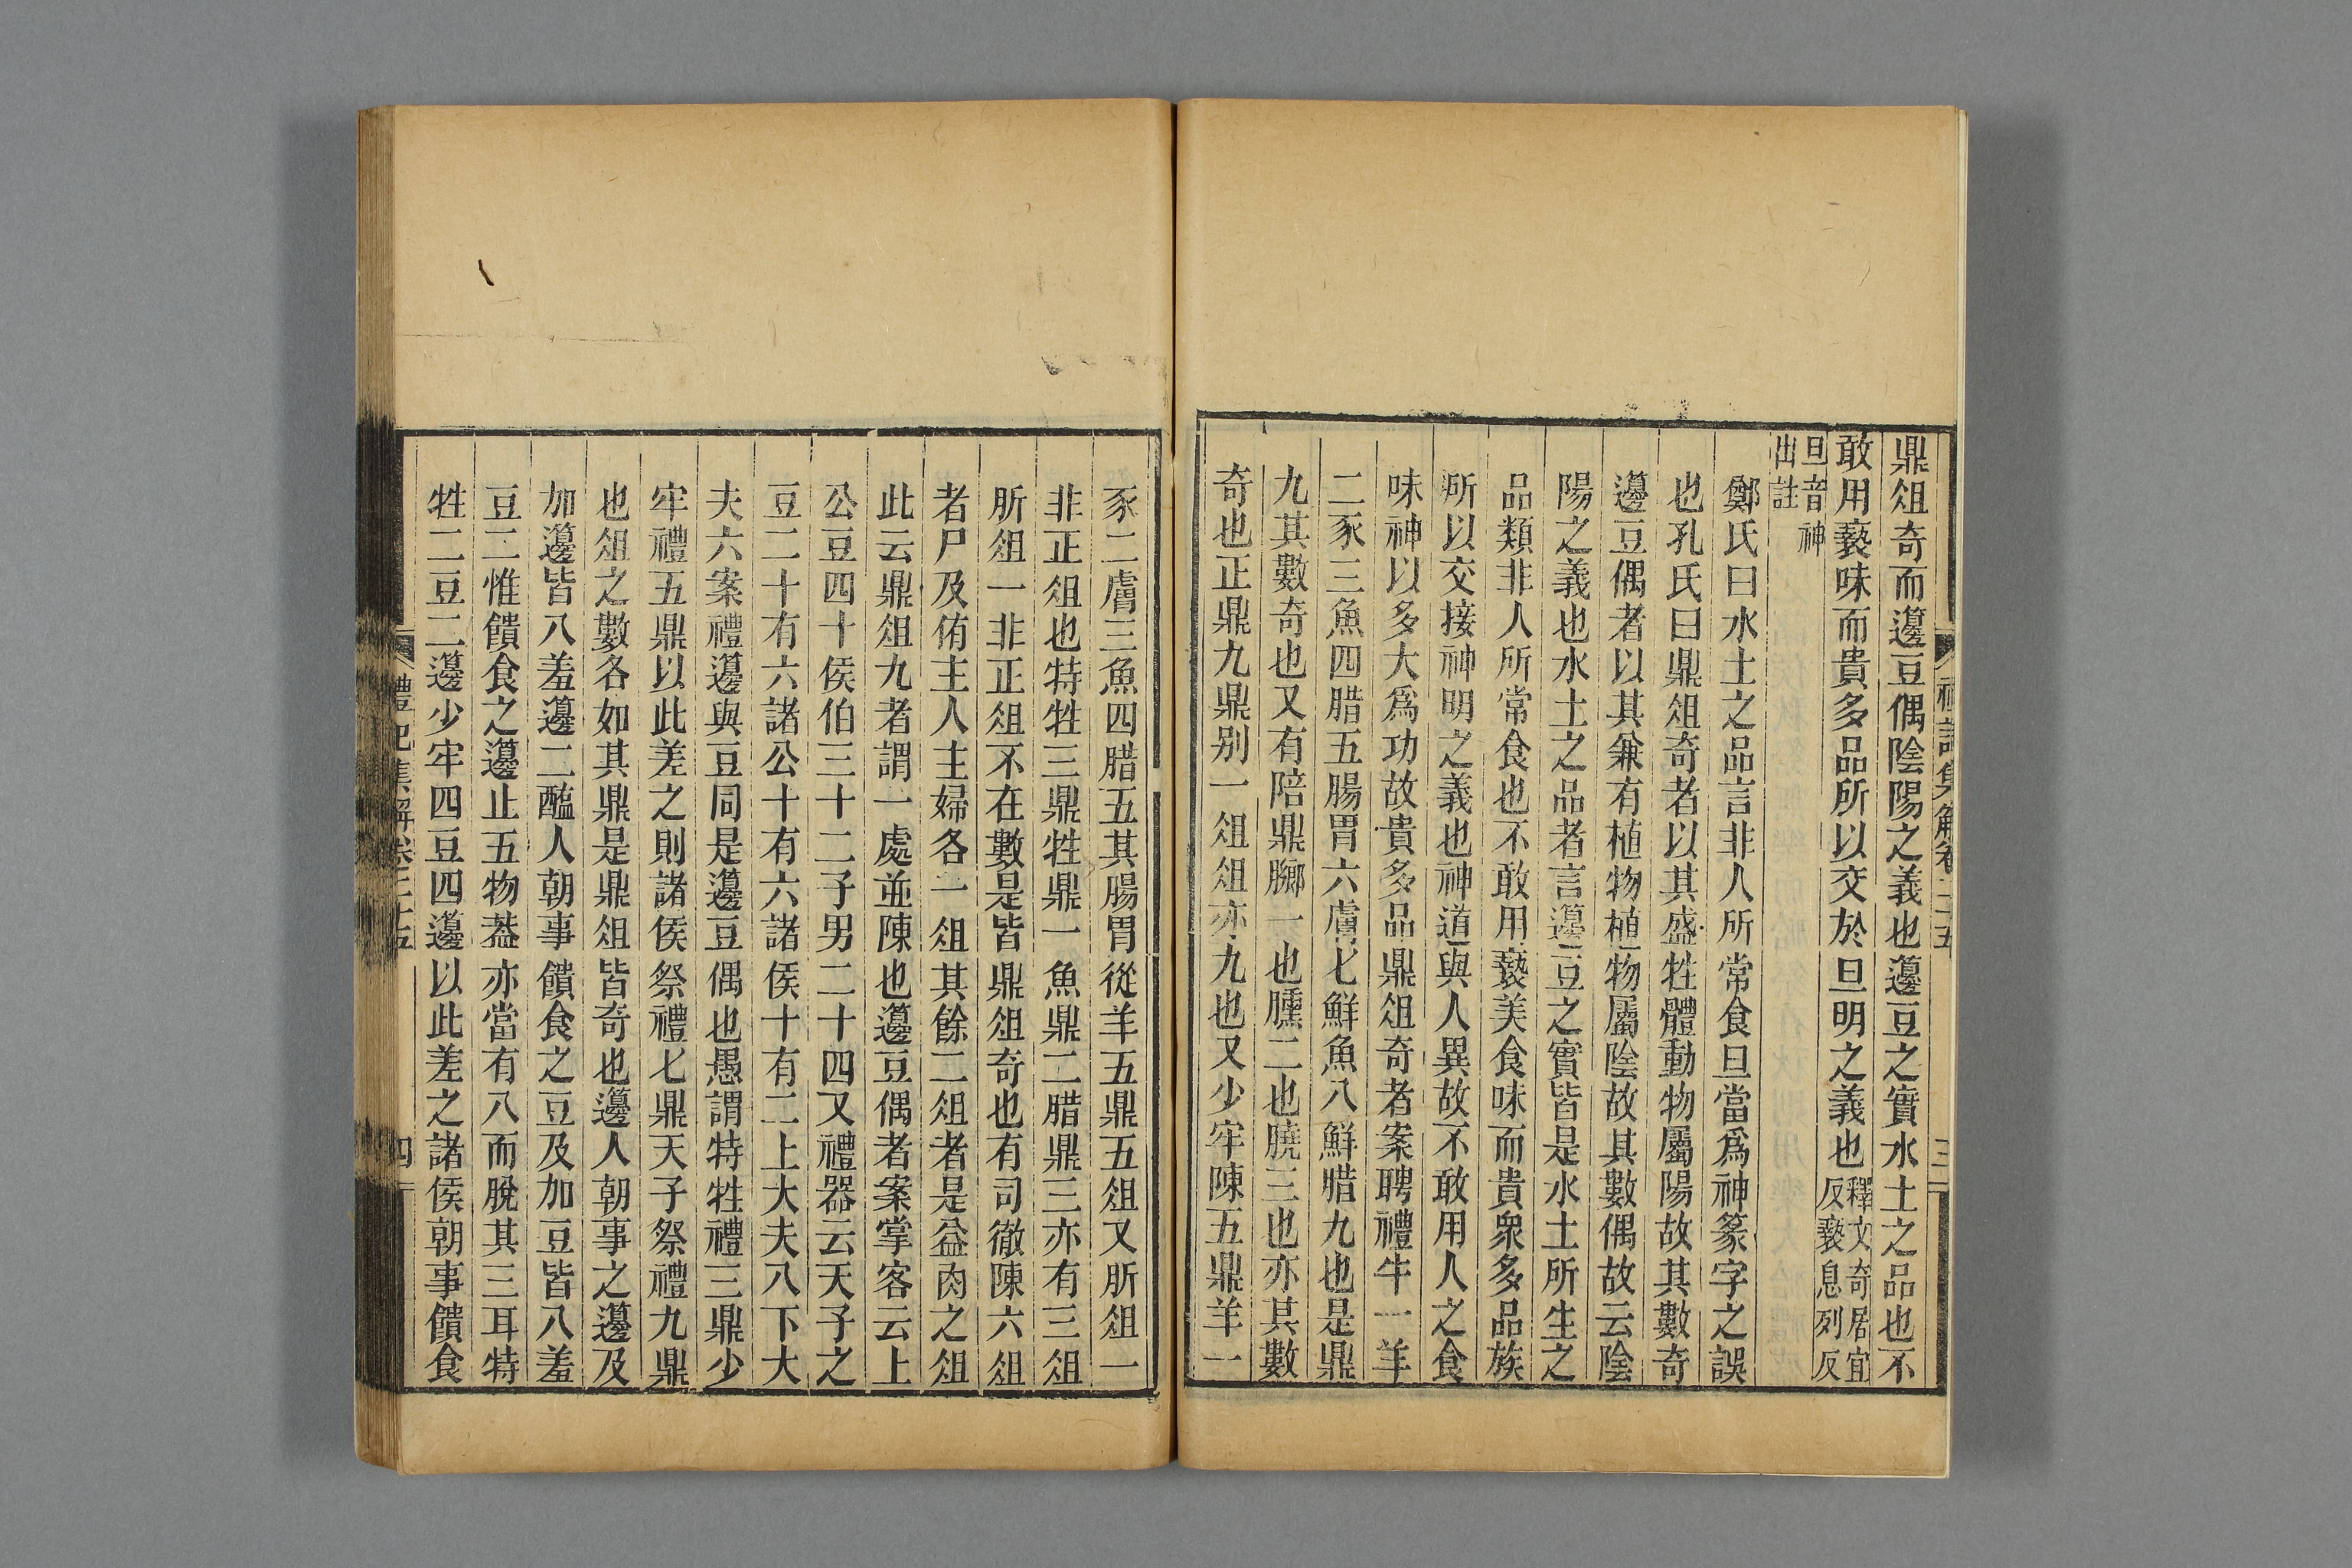 禮記集解卷二十五
三
鼎俎奇而籩豆偶陰陽之義也籩豆之實水土之品也不
敢用褻味而貴多品所以交於旦明之義也釋文奇居宜反褻息列反
旦音神出註
鄭氏曰水土之品言非人所常食旦當爲神篆字之誤
也孔氏曰鼎俎奇者以其盛牲體動物屬陽故其數奇
籩豆偶者以其兼有植物植物屬陰故其數偶故云陰
陽之義也水土之品者言籩豆之實皆是水土所生之
品類非人所常食也不敢用褻美食味而貴眾多品族
所以交接神明之義也神道與人異故不敢用人之食
味神以多大爲功故貴多品鼎俎奇者案聘禮牛一羊
二豕三魚四腊五腸胃六膚七鮮魚八鮮腊九也是鼎
九其數奇也又有陪鼎膷一也臐二也膮三也亦其數
奇也正鼎九鼎別一俎俎亦九也又少牢陳五鼎羊一
豕二膚三魚四腊五其腸胃從羊五鼎五俎又肵俎一
非正俎也特牲三鼎牲鼎一魚鼎二腊鼎三亦有三俎
肵俎一非正俎不在數是皆鼎俎奇也有司徹陳六俎
者尸及侑主人主婦各一俎其餘二俎者是益肉之俎
此云鼎俎九者謂一處並陳也籩豆偶者案掌客云上
公豆四十侯伯三十二子男二十四又禮器云天子之
豆二十有六諸公十有六諸侯十有二上大夫八下大
夫六案禮籩與豆同是籩豆偶也愚謂特牲禮三鼎少
牢禮五鼎以此差之則諸侯祭禮七鼎天子祭禮九鼎
也俎之數各如其鼎是鼎俎皆奇也籩人朝事之籩及
加籩皆八羞籩二醢人朝事饋食之豆及加豆皆八羞
豆二惟饋食之籩止五物葢亦當有八而脫其三耳特
牲二豆二籩少牢四豆四籩以此差之諸侯朝事饋食
禮記集解卷二十五
四